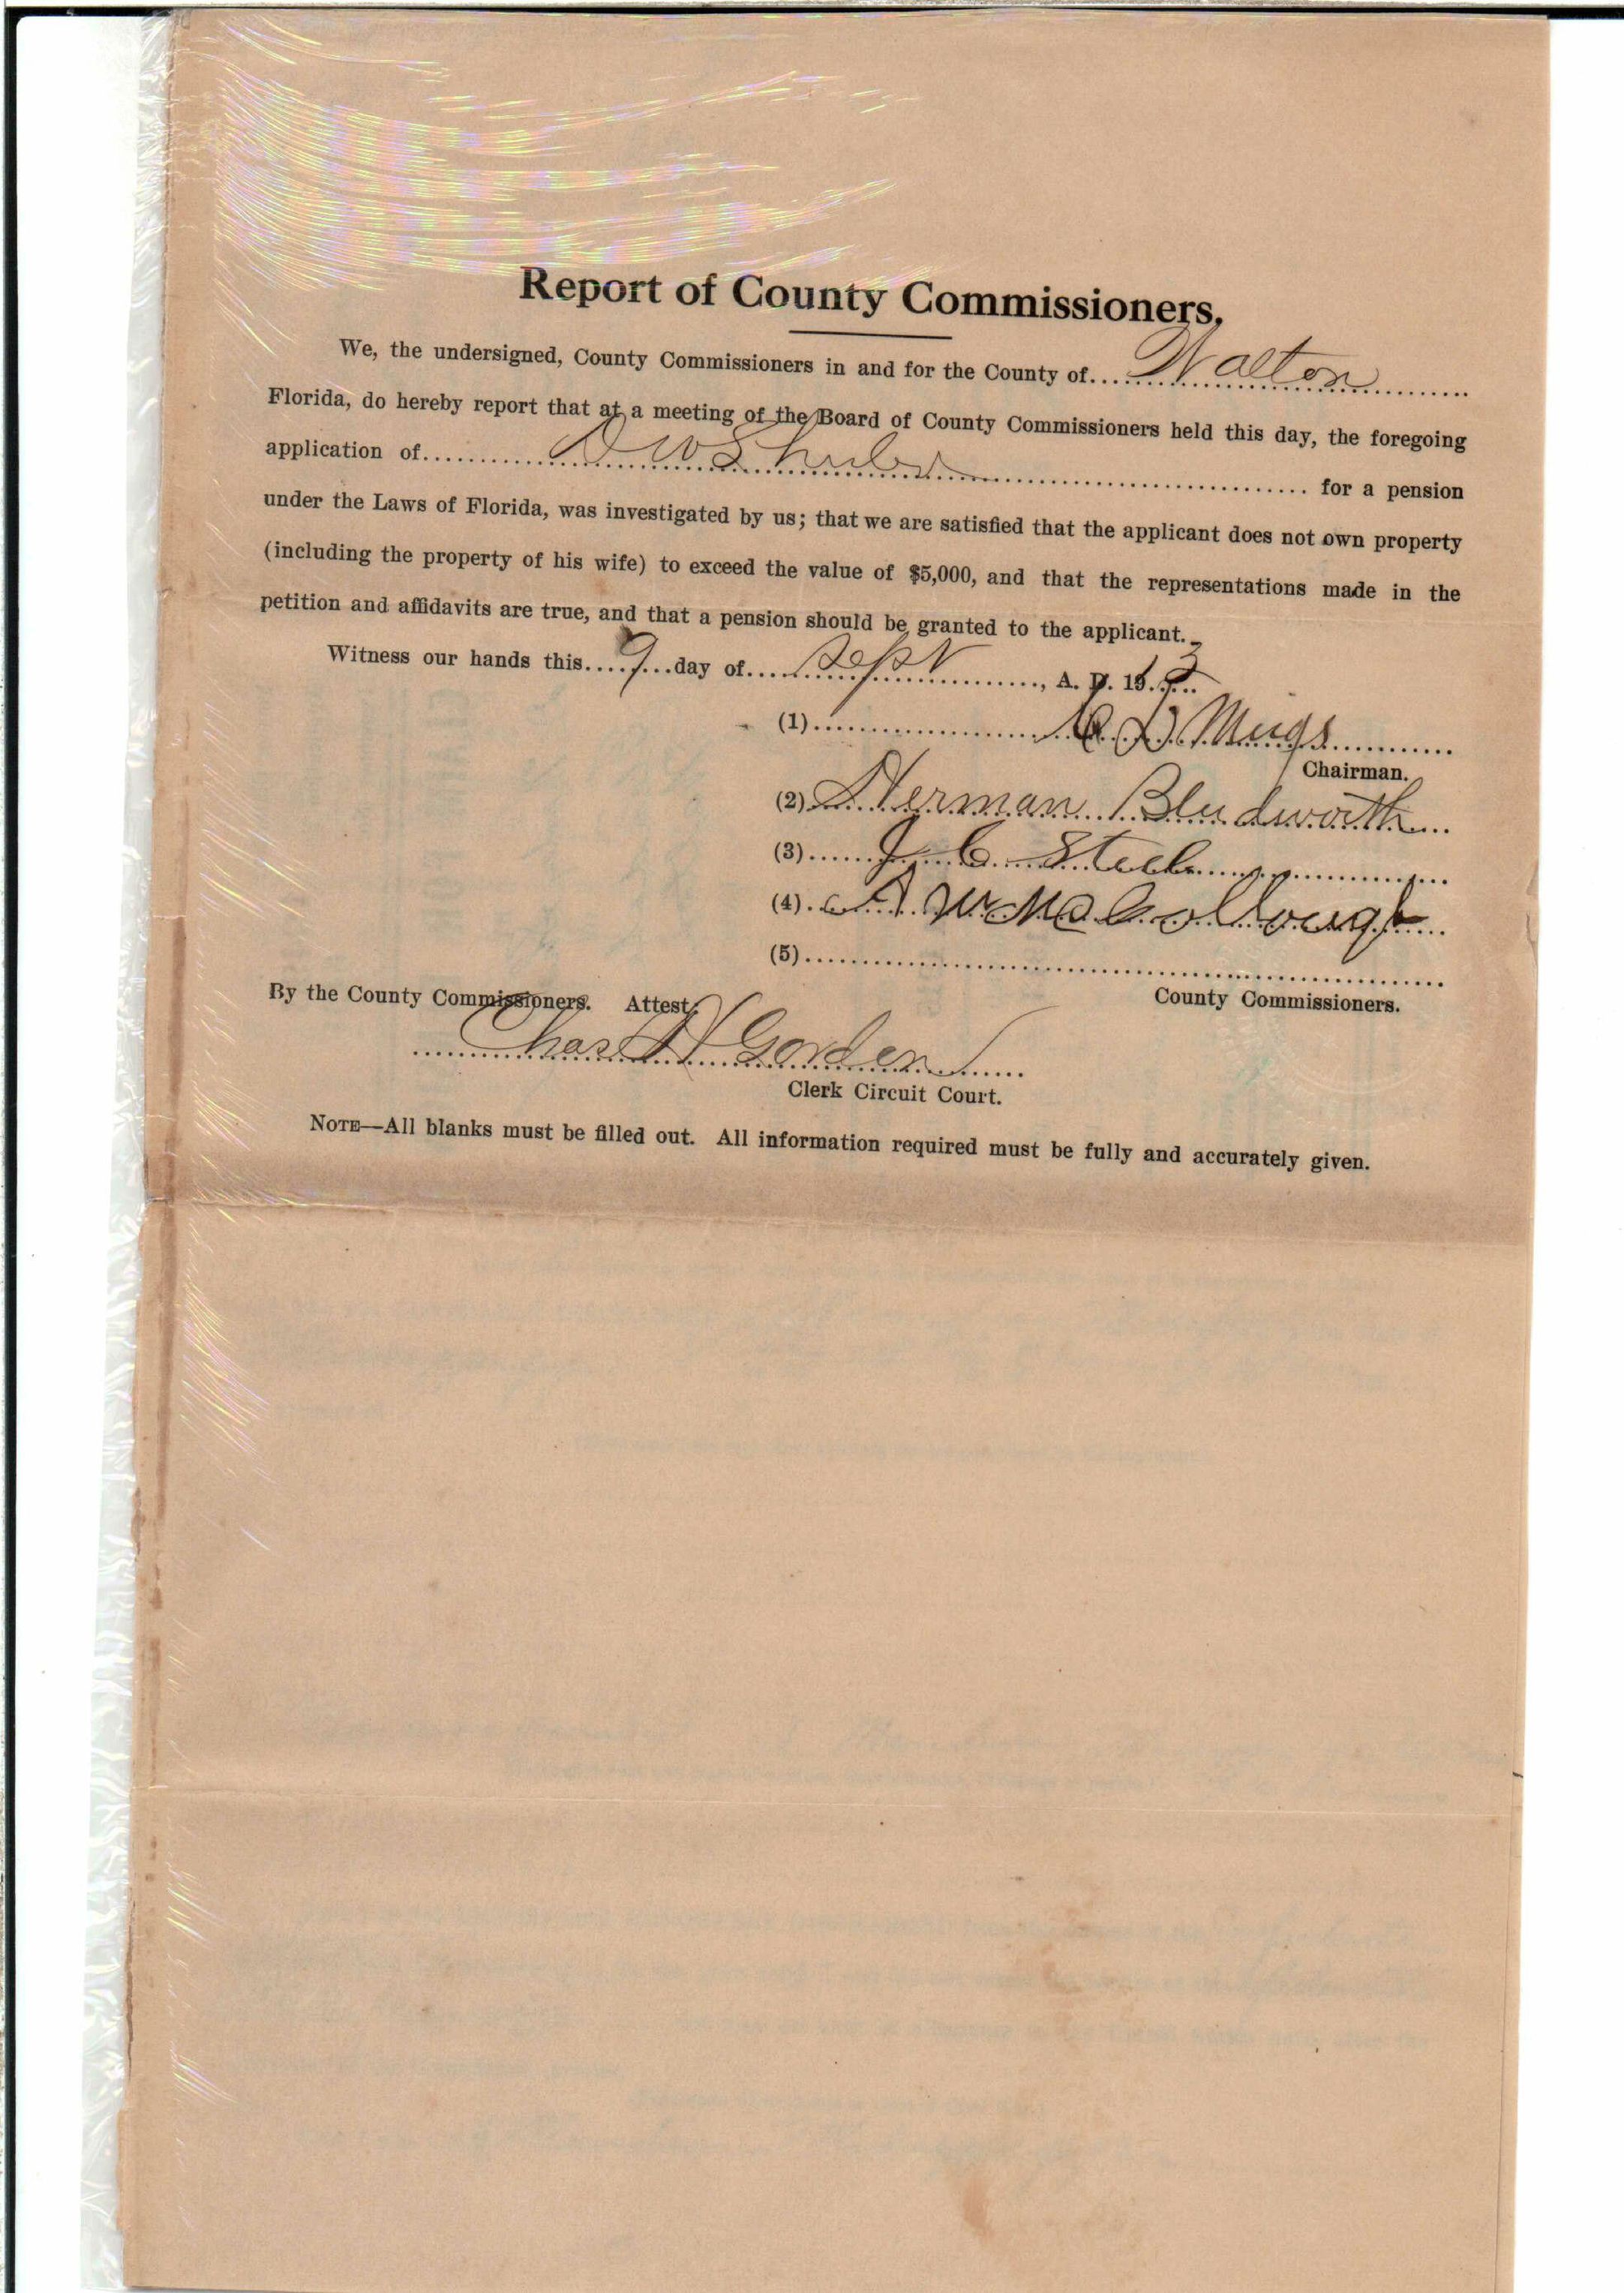 Report of County Commissioners.
We, the undersigned, County Commissioners in and for the County of Walton
Florida, do hereby report that at a meeting of the Board of County Commissioners held this day, the foregoing
application of D W for a pension
under the Laws of Florida, was investigated by us; that we are satisfied that the applicant does not own property
(including the property of his wife) to exceed the value of $5,000, and that the representations made in the
petition and affidavits are true, and that a pension should be granted to the applicant.
Witness our hands this 9 day of Sept, A. D. 1913
(1) D Meigs
Chairman.
(2) Herman Bludworth
(3) J C Steele
(4) A W McCollough
(5)
By the County Commissioners. Attest: County Commissioners.
Chas H Gordon
Clerk Circuit Court.
NOTE—All blanks must be filled out. All information required must be fully and accurately given.